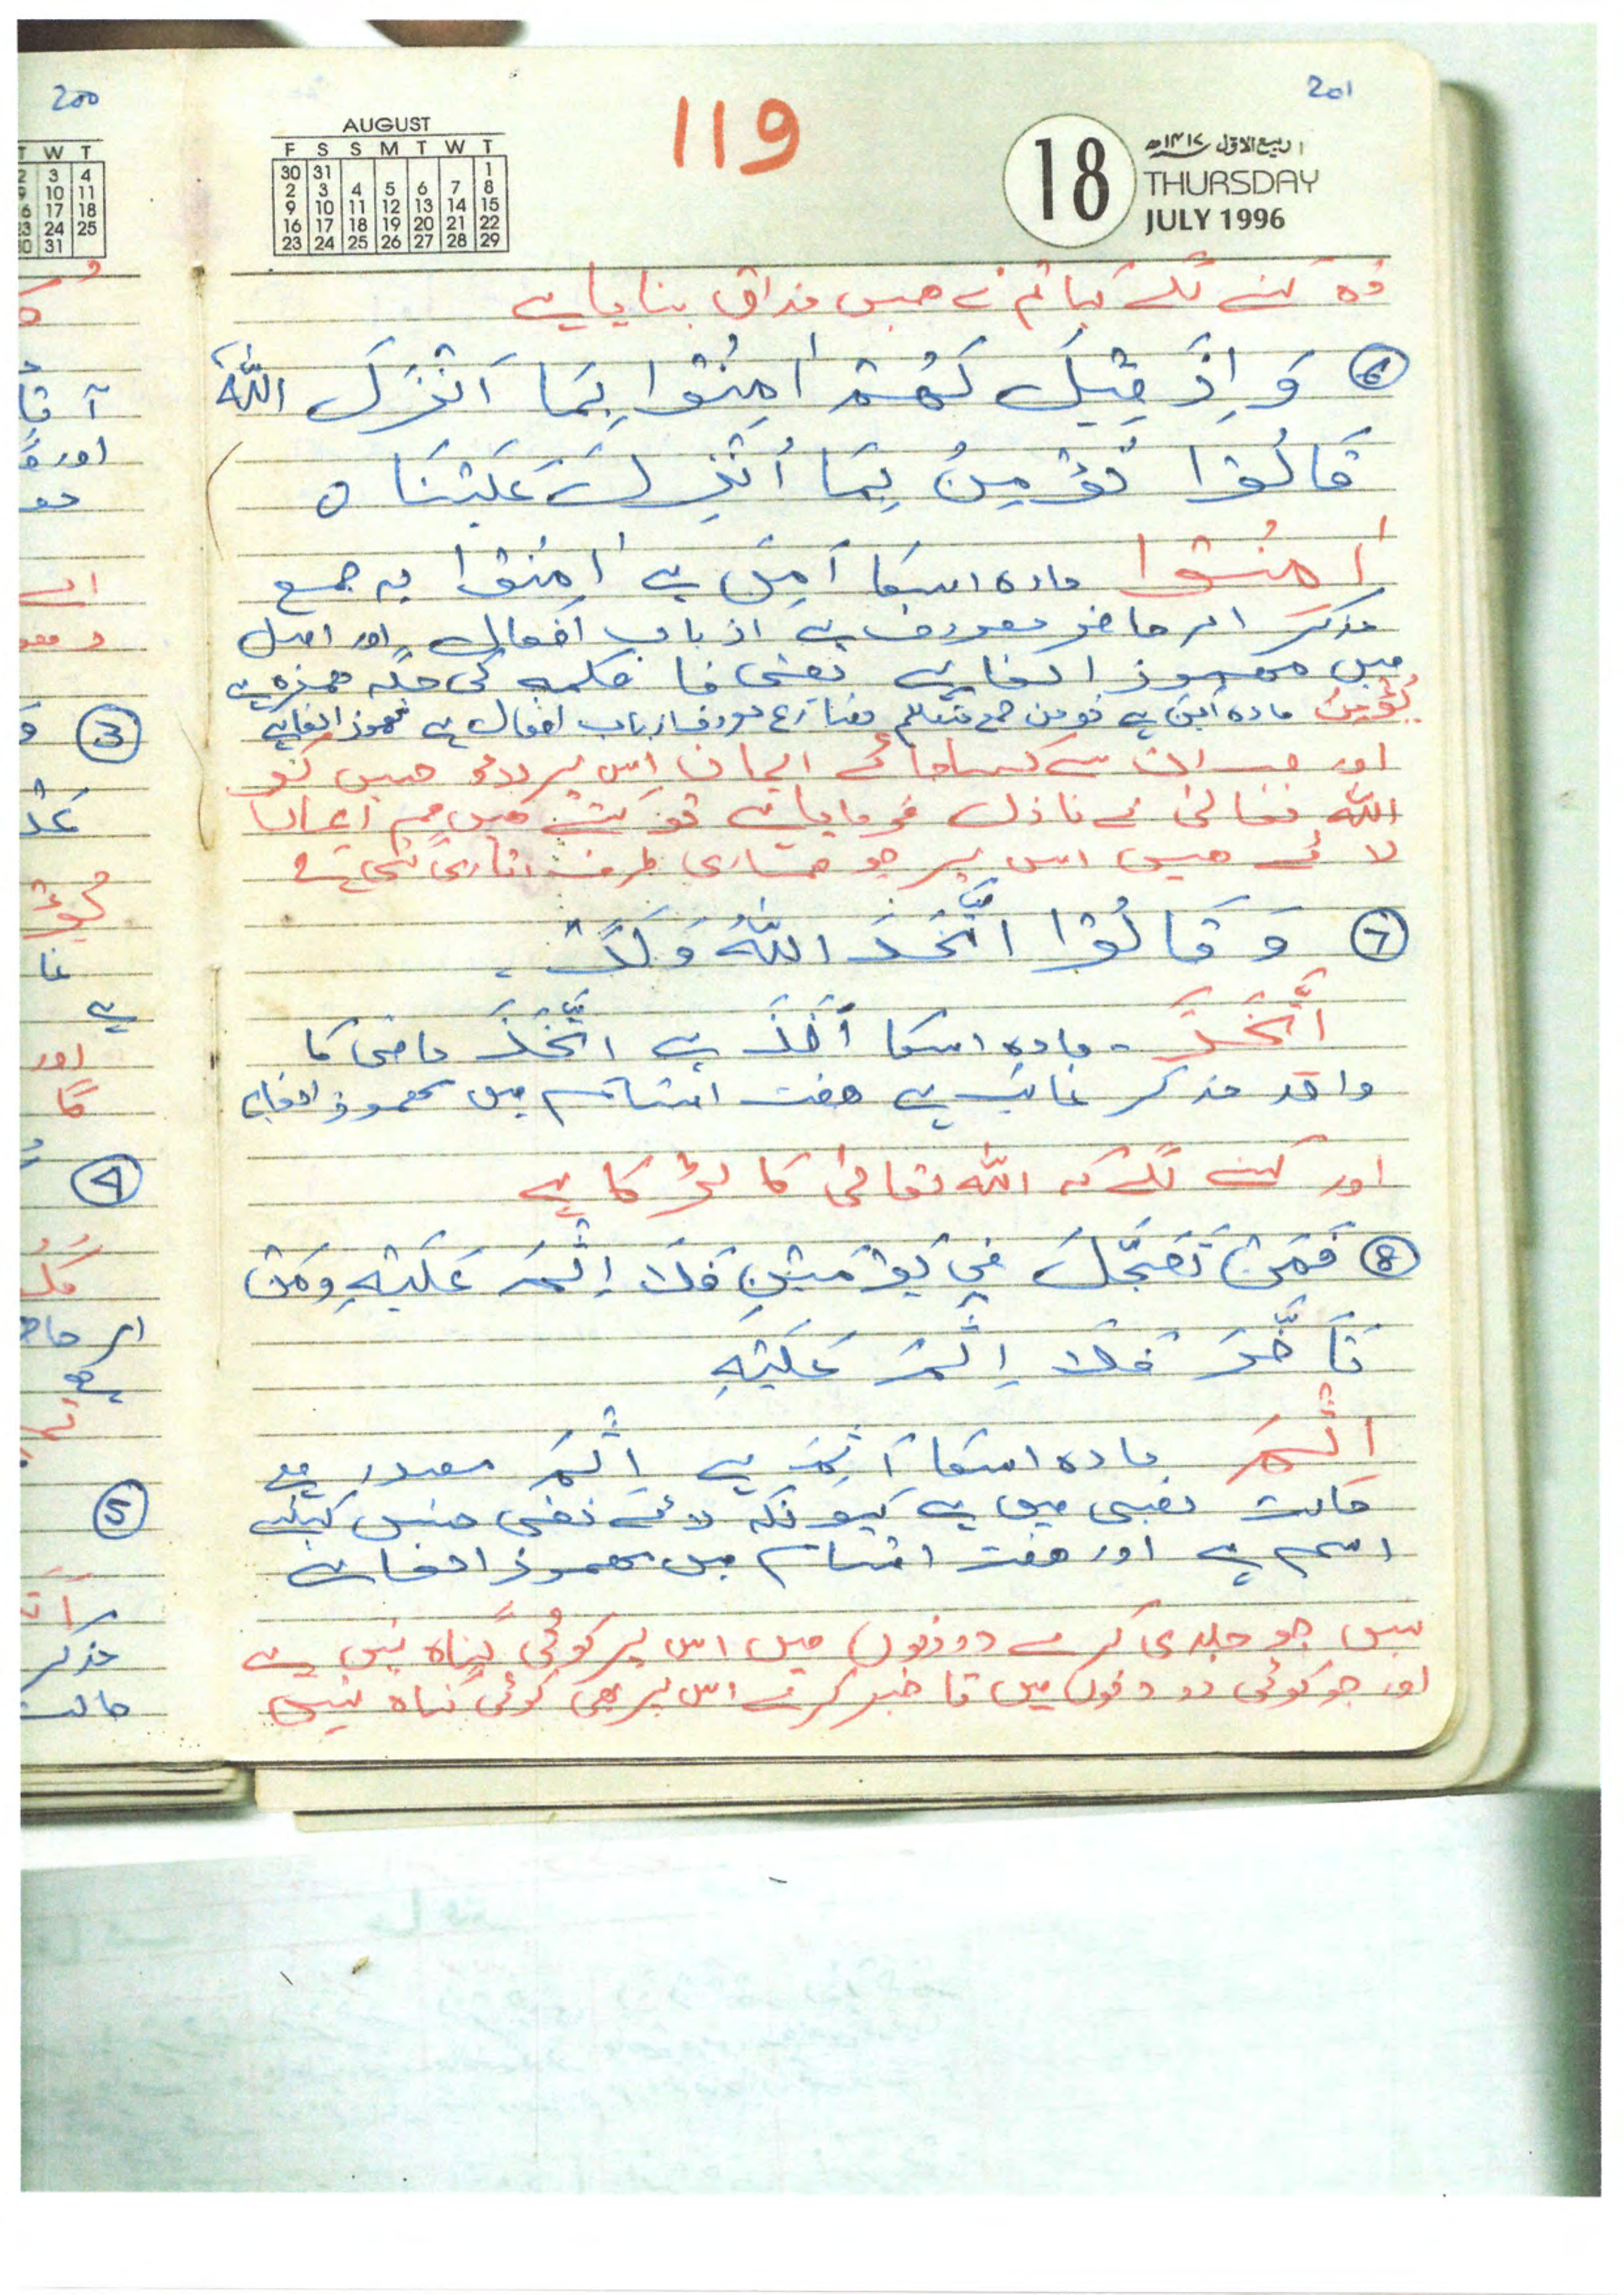 201
119
AUGUST
F S S M T W T
30 31 1
2 3 4 5 6 7 8
9 10 11 12 13 14 15
16 17 18 19 20 21 22
23 24 25 26 27 28 29
18
۱ ربیع الاول ۱۴۱۷ھ
THURSDAY
JULY 1996
وہ کہنے لگے کیا تم نے ھمیں مذاق بنایا ہے
⑥ وَ اِذَ قِیْلَ لَہُمْ اٰمِنُوْا بِمَا اَنْزَلَ اللّٰہُ
قَالُوْا نُؤْمِنُ بِمَا اُنْزِلَ عَلَیْنَا ہ
اٰمِنُوْا مادہ اسکا اَمِنَ ہے اٰمِنُوْا یہ جمع
مذکر امر حاضر معروف ہے از باب افعال اور اصل
میں مھموذ الفا ہے یعنی فا کلمہ کی جگہ ھمزہ ہے
نُؤْمِنُ مادہ اَمِنَ ہے نومن جمع متکلم مضارع معروف از باب افعال ہے مھموذ الفا ہے
اور جب ان سے کہا جائے ایمان اس پر لاؤ جس کو
اللّٰہ تعالیٰ نے نازل فرمایا ہے تو کہتے ھیں ھم ایمان
لائے ھیں اس پر جو ھماری طرف اتاری گئی ہے
⑦ وَ قَالُوْا اتَّخَذَ اللّٰہُ وَلَدً
اتَّخَذَ - مادہ اسکا اَخَذَ ہے اتَّخَذَ ماضی کا
واحد مذکر غائب ہے ھفت اقسام میں مھموذ الفا ہے
اور کہنے لگے کہ اللّٰہ تعالیٰ کا لڑکا ہے
⑧ فَمَنْ تَعَجَّلَ فِیْ یَوْمَیْنِ فَلَا اِثْمَ عَلَیْہِ وَمَنْ
تَاَخَّرَ فَلَا اِثْمَ عَلَیْہِ
اِثْمَ مادہ اسکا اَثِمَ ہے اِثْمَ مصدر ہے
حالت نصبی میں ہے کیونکہ لائے نفی جنس کیلئے
اسم ہے اور ھفت اقسام میں مھموذ الفا ہے
پس جو جلدی کرے دو دنوں میں اس پر کوئی گناہ نہیں ہے
اور جو کوئی دو دنوں میں تاخیر کرے اس پر بھی کوئی گناہ نہیں
200
W T
3 4
10 11
17 18
24 25
31
اور
③
④
⑤
مذکر
حالت